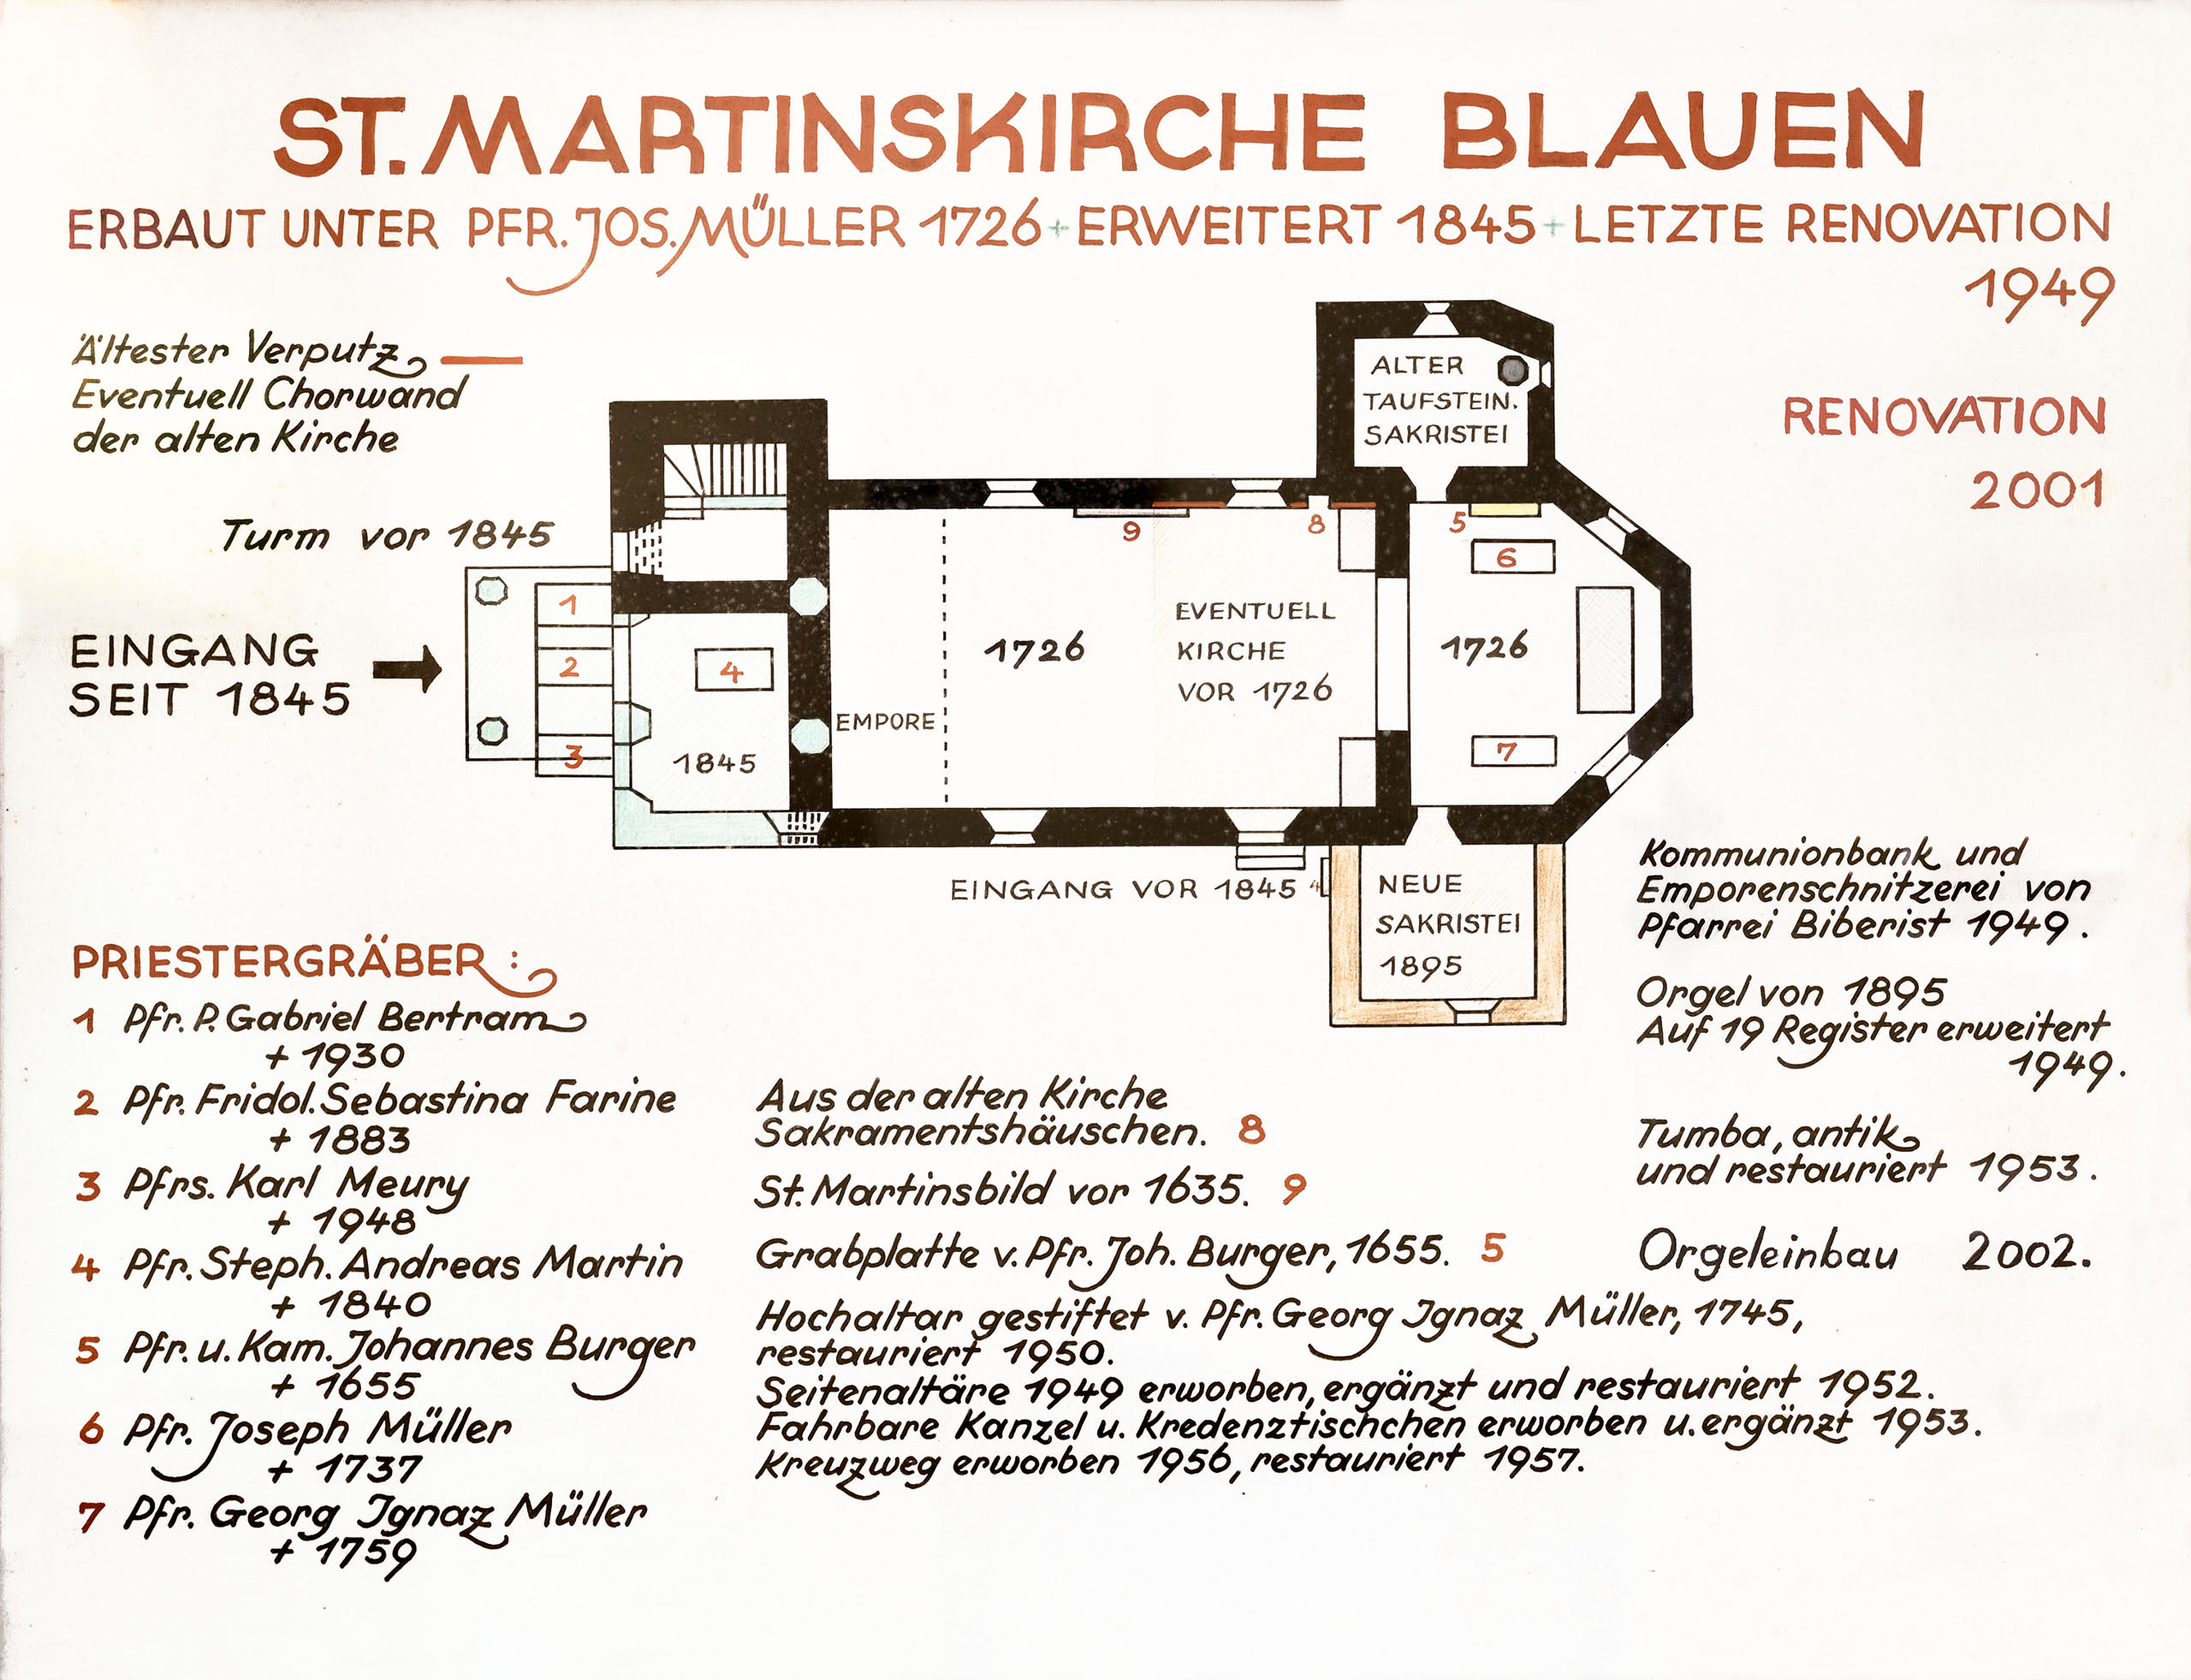 ST. MARTINSKIRCHE BLAUEN
ERBAUT UNTER PFR. JOS. MÜLLER 1726 + ERWEITERT 1845 + LETZTE RENOVATION
1949
RENOVATION
2001
Ältester Verputz
Eventuell Chorwand
der alten Kirche
Turm vor 1845
EINGANG
SEIT 1845
ALTER
TAUFSTEIN.
SAKRISTEI
9
8
5
6
1
2
3
4
1845
EMPORE
1726
EVENTUELL
KIRCHE
VOR 1726
1726
7
EINGANG VOR 1845 4
NEUE
SAKRISTEI
1895
PRIESTERGRÄBER :
1 Pfr. P. Gabriel Bertram
+ 1930
2 Pfr. Fridol. Sebastina Farine
+ 1883
3 Pfrs. Karl Meury
+ 1948
4 Pfr. Steph. Andreas Martin
+ 1840
5 Pfr. u. Kam. Johannes Burger
+ 1655
6 Pfr. Joseph Müller
+ 1737
7 Pfr. Georg Ignaz Müller
+ 1759
Aus der alten Kirche
Sakramentshäuschen. 8
St. Martinsbild vor 1635. 9
Grabplatte v. Pfr. Joh. Burger, 1655. 5
Hochaltar gestiftet v. Pfr. Georg Ignaz Müller, 1745,
restauriert 1950.
Seitenaltäre 1949 erworben, ergänzt und restauriert 1952.
Fahrbare Kanzel u. Kredenztischchen erworben u. ergänzt 1953.
Kreuzweg erworben 1956, restauriert 1957.
Kommunionbank und
Emporenschnitzerei von
Pfarrei Biberist 1949.
Orgel von 1895
Auf 19 Register erweitert
1949.
Tumba, antik
und restauriert 1953.
Orgeleinbau 2002.